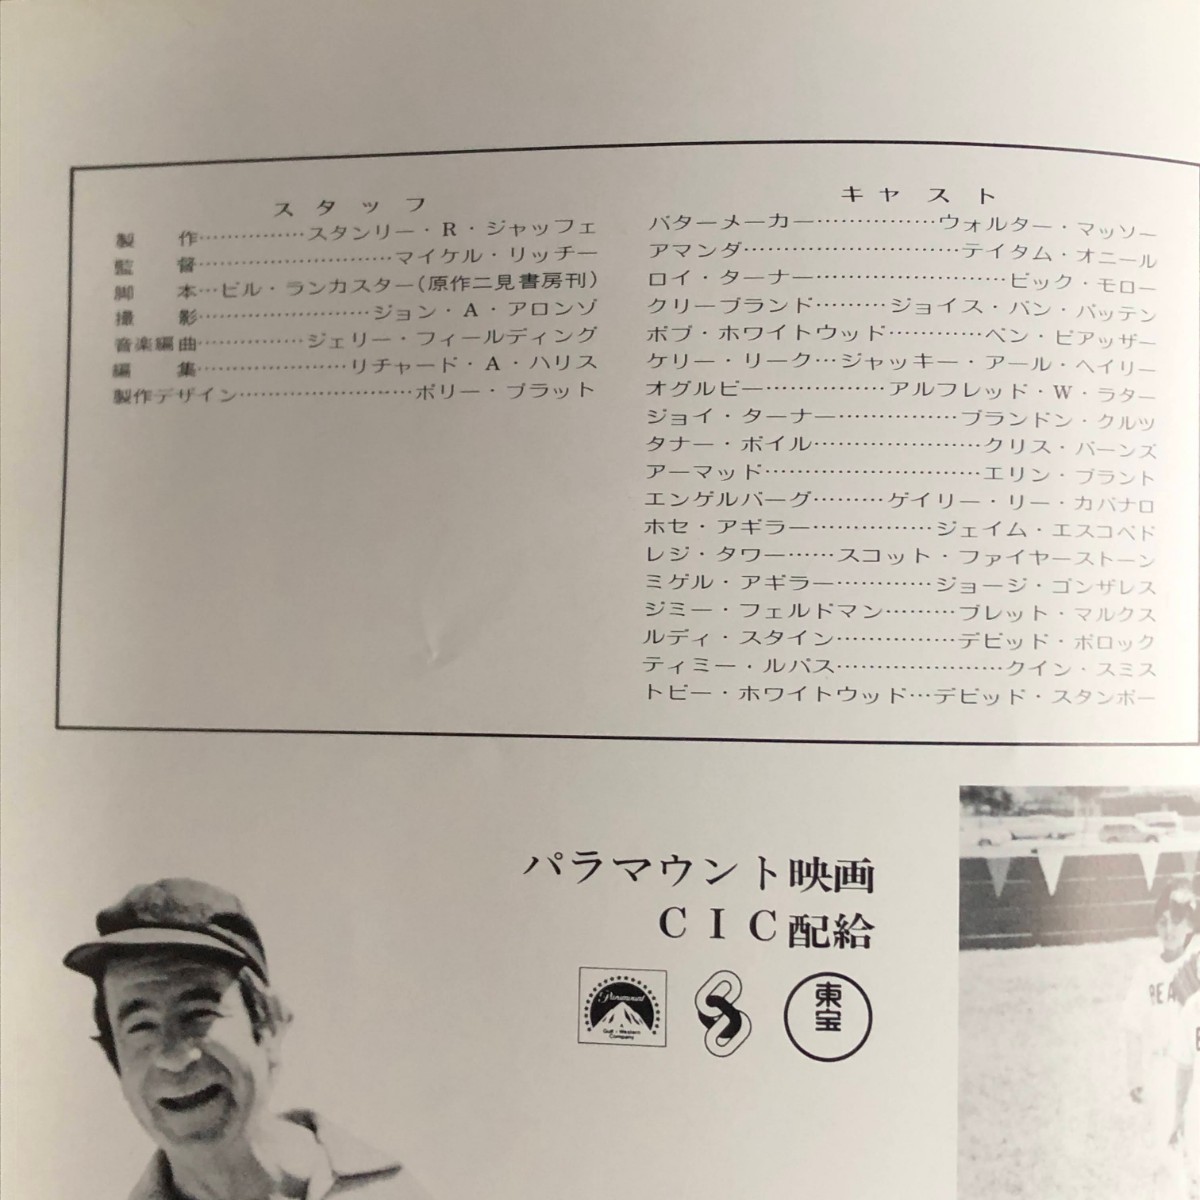 スタッフ
製作……………スタンリー・R・ジャッフェ
監督………………………マイケル・リッチー
脚本…ビル・ランカスター(原作二見書房刊)
撮影……………………ジョン・A・アロンゾ
音楽編曲……………ジェリー・フィールディング
編集…………………リチャード・A・ハリス
製作デザイン……………………ポリー・プラット
キャスト
バターメーカー……………ウォルター・マッソー
アマンダ………………………テイタム・オニール
ロイ・ターナー……………………ビック・モロー
クリーブランド………ジョイス・バン・パッテン
ボブ・ホワイトウッド…………ベン・ピアッザー
ケリー・リーク…ジャッキー・アール・ヘイリー
オグルビー……………アルフレッド・W・ラター
ジョイ・ターナー……………ブランドン・クルツ
タナー・ボイル…………………クリス・バーンズ
アーマッド………………………エリン・ブラント
エンゲルバーグ………ゲイリー・リー・カバナロ
ホセ・アギラー……………ジェイム・エスコベド
レジ・タワー……スコット・ファイヤーストーン
ミゲル・アギラー…………ジョージ・ゴンザレス
ジミー・フェルドマン………ブレット・マルクス
ルディ・スタイン……………デビッド・ポロック
ティミー・ルパス…………………クイン・スミス
トビー・ホワイトウッド…デビッド・スタンボー
パラマウント映画
CIC配給
Paramount
A
Gulf+Western
Company
東宝
BEA